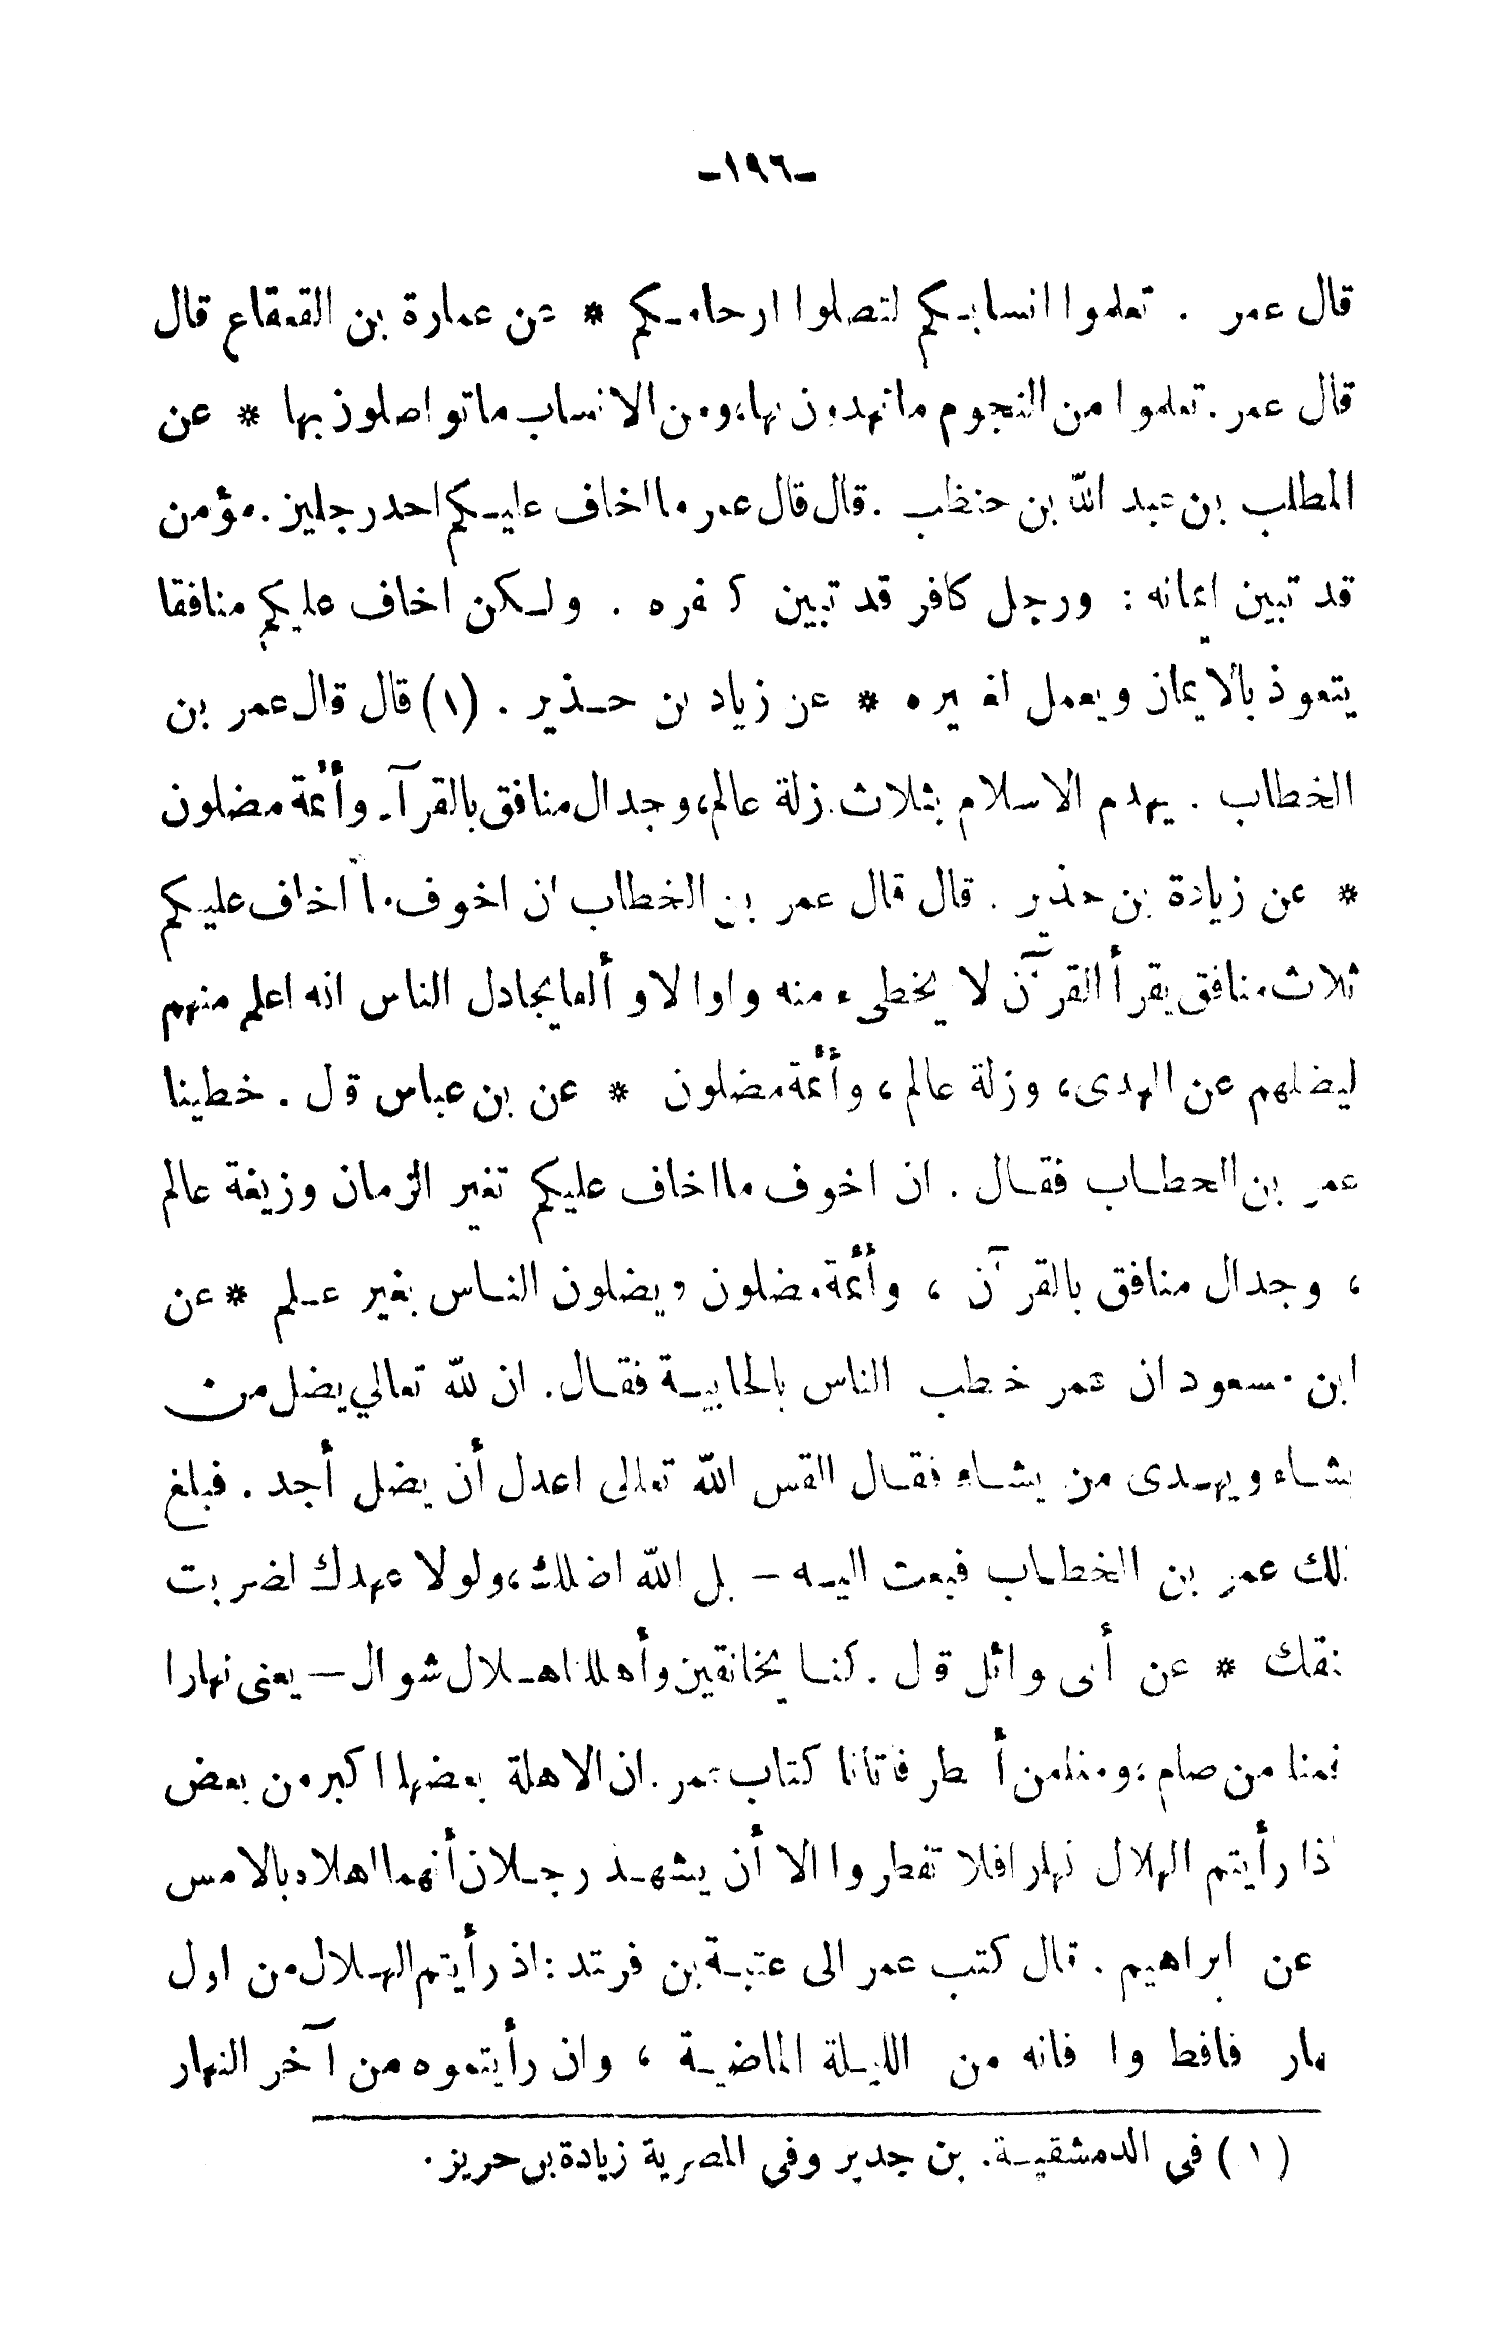 -١٩٦-
قال عمر . تعلموا انسابكم لتصلوا ارحامكم * عن عمارة بن القعقاع قال
قال عمر . تعلموا من النجوم ما تهدون بها، ومن الانساب ما تواصلون بها * عن
المطلب بن عبد الله بن حنظب . قال قال عمر ما اخاف عليكم احد رجلين . مؤمن
قد تبين ايمانه : ورجل كافر قد تبين كفره . ولكن اخاف عليكم منافقا
يتعوذ بالايمان ويعمل لغيره * عن زياد بن حذير . (١) قال قال عمر بن
الخطاب . يهدم الاسلام بثلاث . زلة عالم، وجدال منافق بالقرآن وأئمة مضلون
* عن زيادة بن حذير . قال قال عمر بن الخطاب ان اخوف ما اخاف عليكم
ثلاث منافق يقرأ القرآن لا يخطىء منه واوا لا و ألفا يجادل الناس انه اعلم منهم
ليضلهم عن الهدى، وزلة عالم، وأئمة مضلون * عن بن عباس قل . خطبنا
عمر بن الخطاب فقال . ان اخوف ما اخاف عليكم تغير الزمان وزيغة عالم
، وجدال منافق بالقرآن ، وأئمة مضلون ويضلون الناس بغير علم * عن
ابن مسعود ان عمر خطب الناس بالجابية فقال . ان لله تعالي يضل من
يشاء ويهدى من يشاء فقال القس الله تعالى اعدل أن يضل أجد . فبلغ
ذلك عمر بن الخطاب فبعث اليه – بل الله اضلك، ولولا عهدك لضربت
نقك * عن أبى وائل قل . كنا بخانقين وأهللنا هلال شوال – يعنى نهارا
فمنا من صام ، ومنا من أ طر فاتانا كتاب عمر . ان الاهلة بعضها اكبر من بعض
ذا رأيتم الهلال نهارا فلا تفطروا الا أن يشهد رجلان أنهما اهلاه بالامس
عن ابراهيم . قال كتب عمر الى عتبة بن فرتد : اذ رأيتم الهلال من اول
هار فافط وا فانه من الليلة الماضية ، وان رأيتموه من آخر النهار
(١) في الدمشقية . بن جدير وفي المصرية زيادة بن حريز .